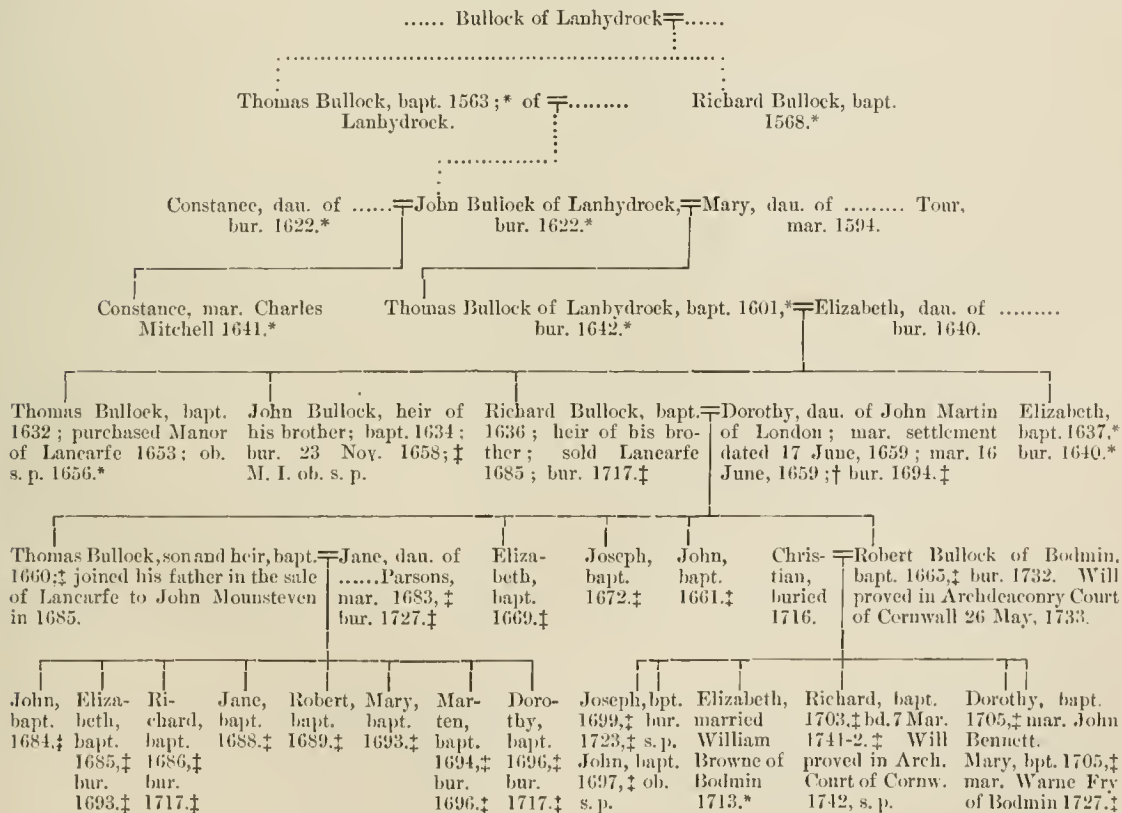 ...... Bullock of Lanhydrock ......
Thomas Bullock, bapt. 1563 ;* of .........
Lanhydrock.
Richard Bullock, bapt.
1568.*
Constance, dau. of ......
bur. 1622.*
John Bullock of Lanhydrock,
bur. 1622.*
Mary, dau. of ......... Tour,
mar. 1594.
Constance, mar. Charles
Mitchell 1641.*
Thomas Bullock of Lanhydrock, bapt. 1601,*
bur. 1642.*
Elizabeth, dau. of .........
bur. 1640.
Thomas Bullock, bapt.
1632 ; purchased Manor
of Lancarfe 1653 ; ob.
s. p. 1656.*
John Bullock, heir of
his brother; bapt. 1634 ;
bur. 23 Nov. 1658 ; ‡
M. I. ob. s. p.
Richard Bullock, bapt.
1636 ; heir of his bro-
ther ; sold Lancarfe
1685 ; bur. 1717.‡
Dorothy, dau. of John Martin
of London ; mar. settlement
dated 17 June, 1659 ; mar. 16
June, 1659 ;† bur. 1694.‡
Elizabeth,
bapt. 1637.*
bur. 1640.*
Thomas Bullock, son and heir, bapt.
1660;‡ joined his father in the sale
of Lancarfe to John Mounsteven
in 1685.
Jane, dau. of
......Parsons,
mar. 1683, ‡
bur. 1727.‡
Eliza-
beth,
bapt.
1669.‡
Joseph,
bapt.
1672.‡
John,
bapt.
1661.‡
Chris-
tian,
buried
1716.
Robert Bullock of Bodmin,
bapt. 1665,‡ bur. 1732. Will
proved in Archdeaconry Court
of Cornwall 26 May, 1733.
John,
bapt.
1684.‡
Eliza-
beth,
bapt.
1685,‡
bur.
1693.‡
Ri-
chard,
bapt.
1686,‡
bur.
1717.‡
Jane,
bapt.
1688.‡
Robert,
bapt.
1689.‡
Mary,
bapt.
1693.‡
Mar-
ten,
bapt.
1694,‡
bur.
1696.‡
Doro-
thy,
bapt.
1696,‡
bur.
1717.‡
Joseph, bpt.
1699,‡ bur.
1723,‡ s. p.
John, bapt.
1697,‡ ob.
s. p.
Elizabeth,
married
William
Browne of
Bodmin
1713.*
Richard, bapt.
1703,‡ bd. 7 Mar.
1741-2.‡ Will
proved in Arch.
Court of Cornw.
1742, s. p.
Dorothy, bapt.
1705,‡ mar. John
Bennett.
Mary, bpt. 1705,‡
mar. Warne Fry
of Bodmin 1727.‡